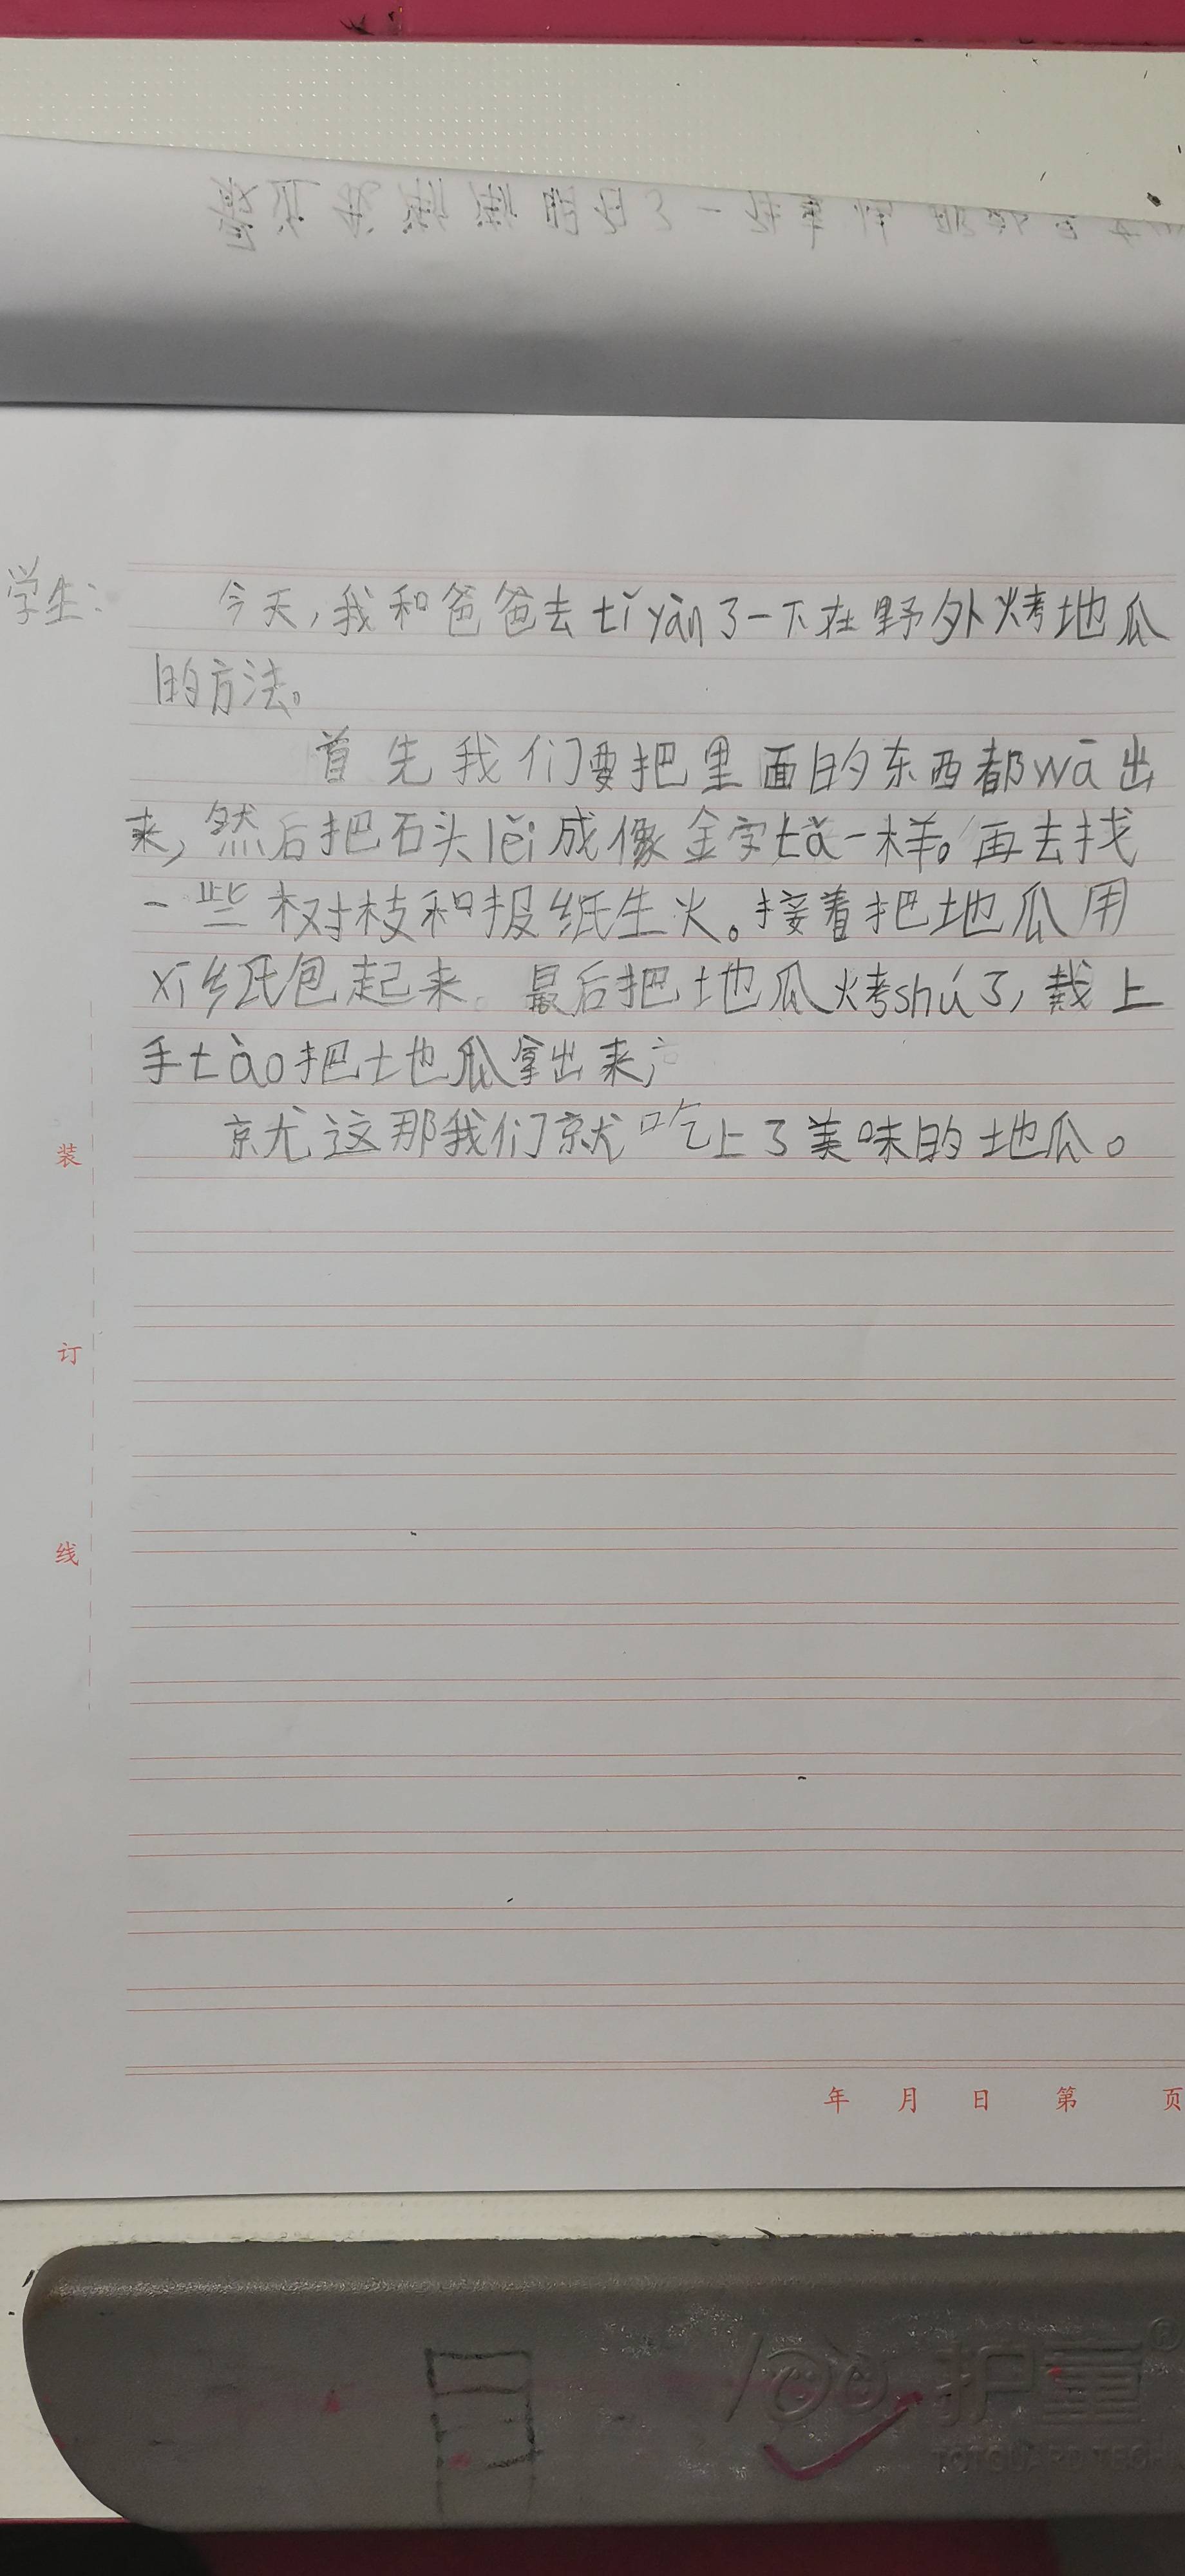 最近我渐渐明白了一件事情
学生：
今天，我和爸爸去tǐ yàn了一下在野外烤地瓜
的方法。
首先我们要把里面的东西都wā出
来，然后把石头lěi成像金字tǎ一样。再去找
一些树枝和报纸生火。接着把地瓜用
xī纸包起来。最后把地瓜烤shú了，戴上
手tào把地瓜拿出来，
就这那我们就吃上了美味的地瓜。
装
订
线
年 月 日 第 页
护童
TOTGUARD TECH